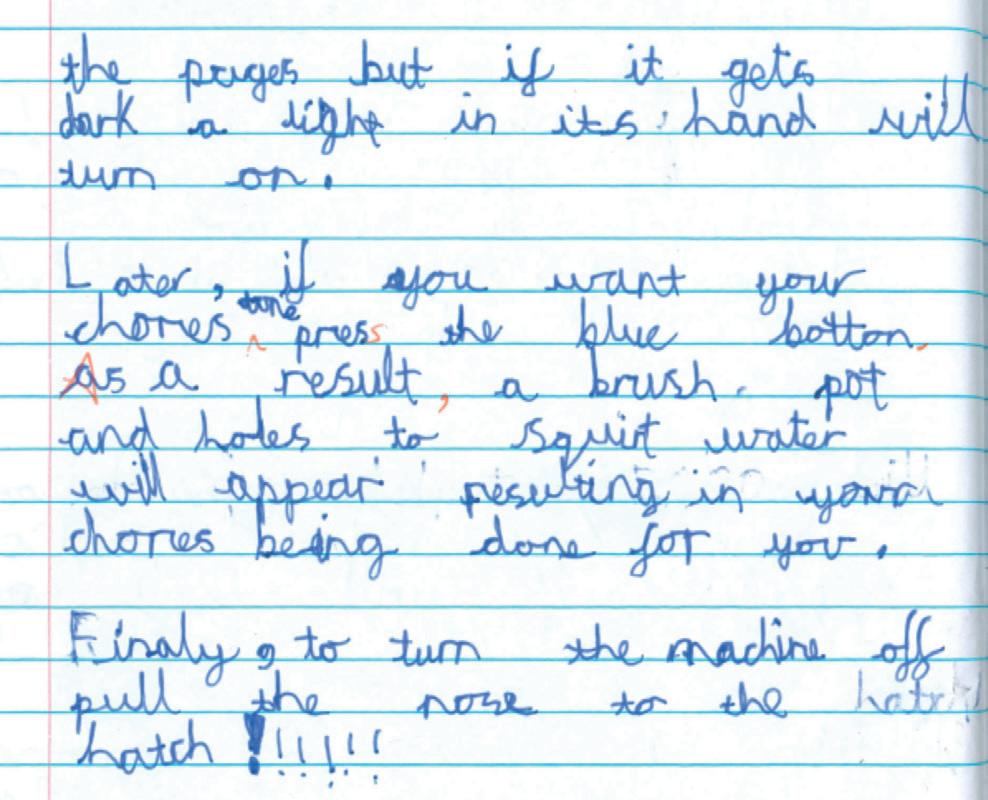 the pages but if it gets
dark a light in its hand will
turn on.
Later, if you want your
chores done press the blue botton.
As a result, a brush pot
and holes to squirt water
will appear resulting in your
chores being done for you.
Finaly, to turn the machine off
pull the nose to the hatch
hatch !!!!!!